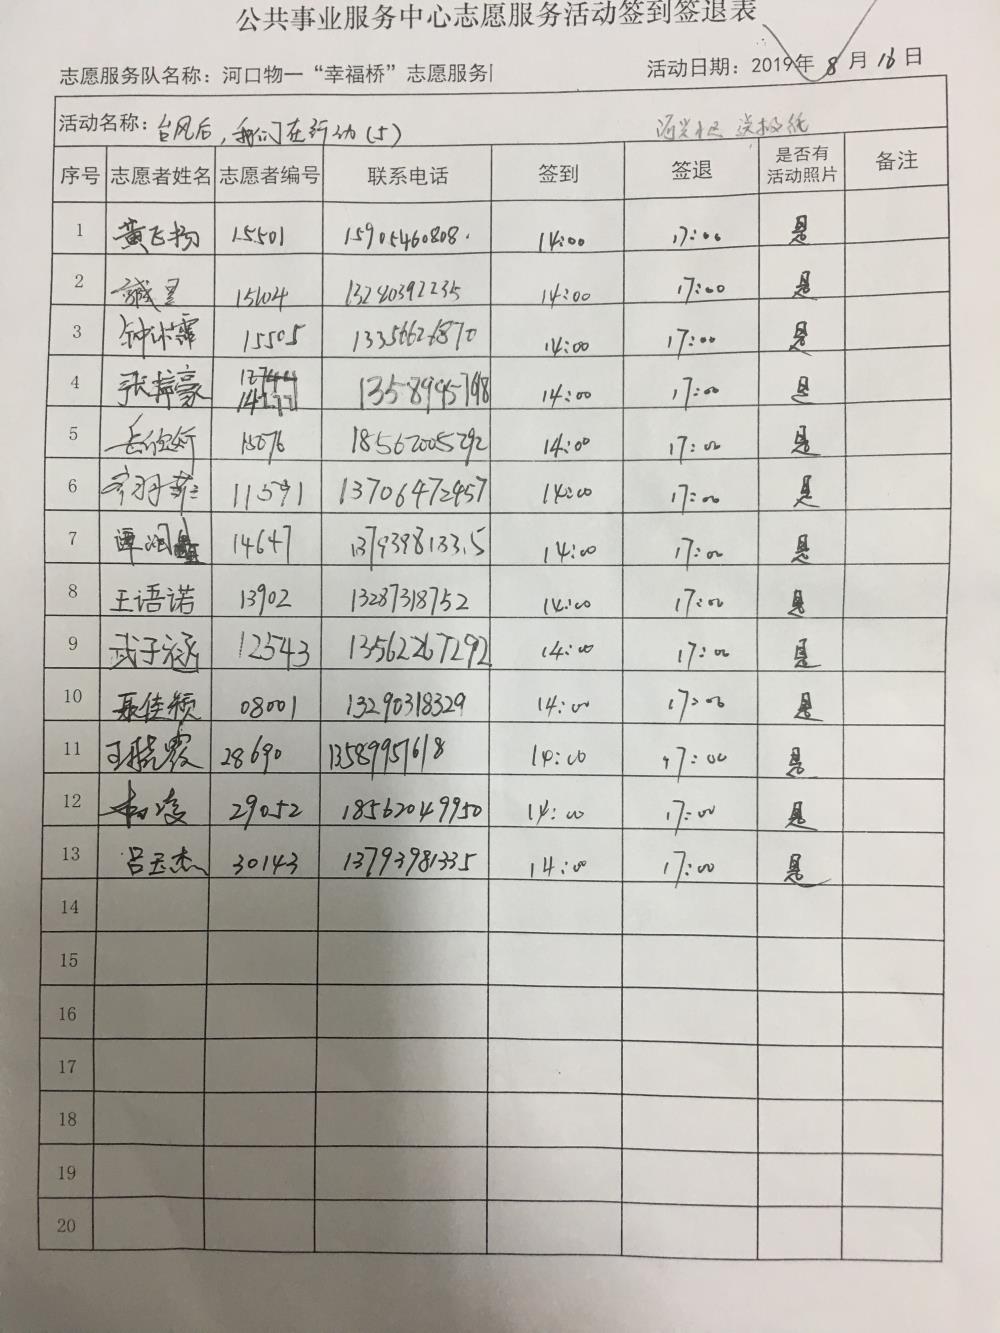 公共事业服务中心志愿服务活动签到签退表
志愿服务队名称：河口物一“幸福桥”志愿服务
活动日期：2019年 8 月 16 日
活动名称：台风后，我们在行动(5)
序号 志愿者姓名 志愿者编号 联系电话 签到 签退 是否有活动照片 备注
1 黄飞扬 15501 15905460808 14:00 17:00 是
2 15104 13280392235 14:00 17:00 是
3 15505 14:00 17:00 是
4 14:00 17:00 是
5 岳欣妍 15076 18562005292 14:00 17:00 是
6 11591 13706472457 14:00 17:00 是
7 谭润 14647 14:00 17:00 是
8 王语诺 13902 13287318752 14:00 17:00 是
9 武子涵 12543 13562267292 14:00 17:00 是
10 聂佳颖 08001 13290318329 14:00 17:00 是
11 王晓霞 28690 13589951618 14:00 17:00 是
12 杨凌 29052 18562049950 14:00 17:00 是
13 吕玉杰 30143 13793981335 14:00 17:00 是
14
15
16
17
18
19
20